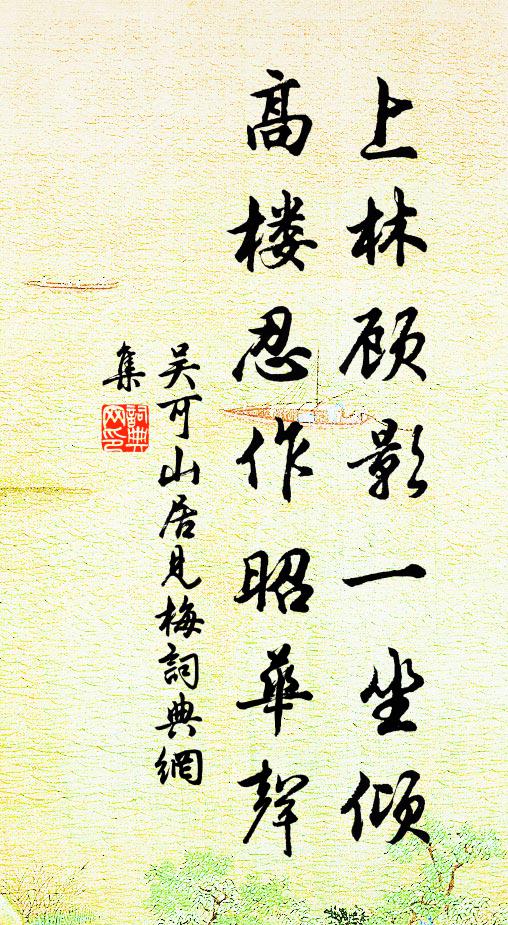 上林顾影一坐倾
高楼忍作昭华聲
吴可山居見梅詞典網
集
詞典
网印